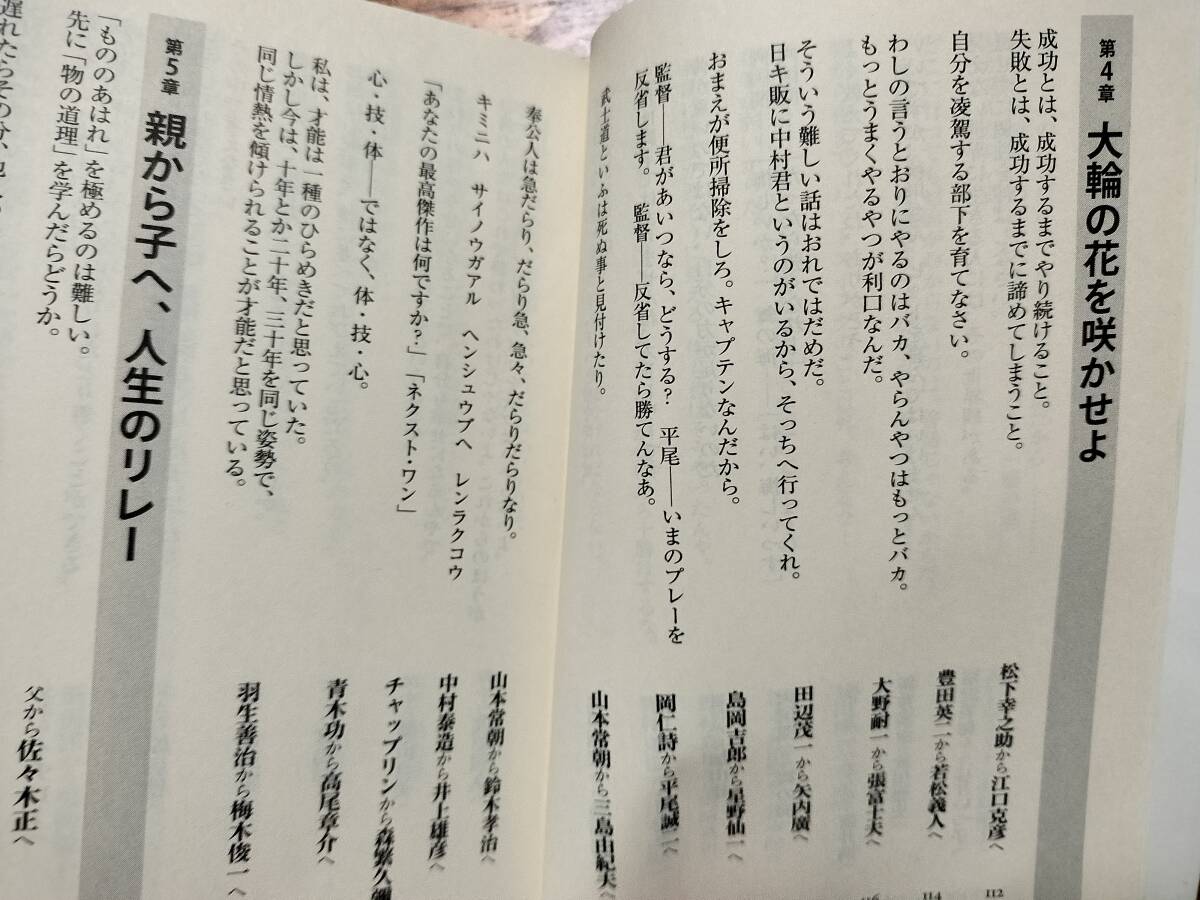 第4章 大輪の花を咲かせよ
成功とは、成功するまでやり続けること。
失敗とは、成功するまでに諦めてしまうこと。
松下幸之助から江口克彦へ
112
自分を凌駕する部下を育てなさい。
豊田英二から若松義人へ
114
わしの言うとおりにやるのはバカ、やらんやつはもっとバカ。
もっとうまくやるやつが利口なんだ。
大野耐一から張富士夫へ
116
そういう難しい話はおれではだめだ。
日キ販に中村君というのがいるから、そっちへ行ってくれ。
田辺茂一から矢内廣へ
おまえが便所掃除をしろ。キャプテンなんだから。
島岡吉郎から星野仙一へ
監督――君があいつなら、どうする? 平尾――いまのプレーを
反省します。 監督――反省してたら勝てんなあ。
岡仁詩から平尾誠二へ
武士道といふは死ぬ事と見付けたり。
山本常朝から三島由紀夫へ
奉公人は急だらり、だらり急、急々、だらりだらりなり。
山本常朝から鈴木孝治へ
キミニハ サイノウガアル ヘンシュウブヘ レンラクコウ
中村泰造から井上雄彦へ
「あなたの最高傑作は何ですか?」「ネクスト・ワン」
チャップリンから森繁久彌
心・技・体――ではなく、体・技・心。
青木功から高尾章介へ
私は、才能は一種のひらめきだと思っていた。
しかし今は、十年とか二十年、三十年を同じ姿勢で、
同じ情熱を傾けられることが才能だと思っている。
羽生善治から梅木俊一へ
第5章 親から子へ、人生のリレー
「もののあはれ」を極めるのは難しい。
先に「物の道理」を学んだらどうか。
父から佐々木正へ
遅れたらその分、